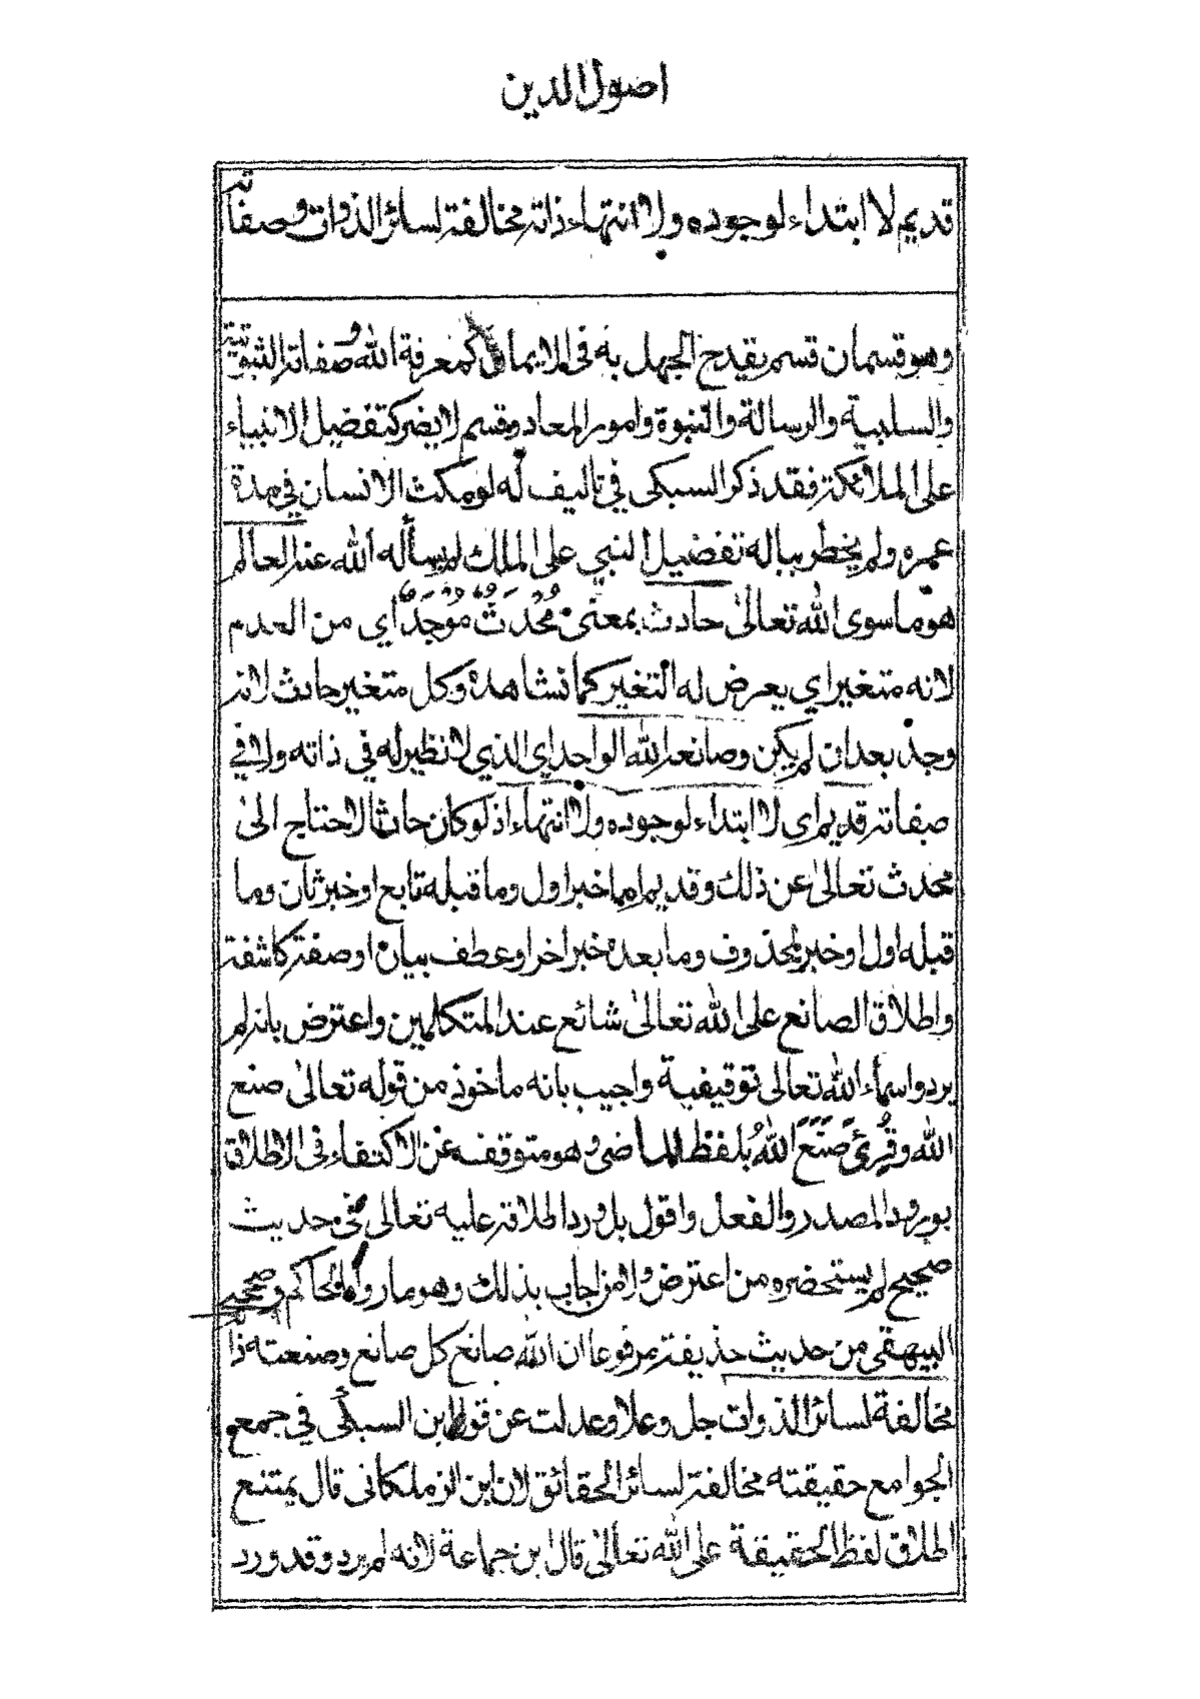 اصول الدين
قديم لا ابتداء لوجوده ولا انتهاء ذاته مخالفة لسائر الذوات وصفاته
وهو قسمان قسم يقدح الجهل به في الايمان كمعرفة الله وصفاته الثبوتية
والسلبية والرسالة والنبوة وامور المعاد وقسم لا يضر كتفضيل الانبياء
على الملائكة فقد ذكر السبكى في تاليف له لو مكث الانسان في مدة
عمره ولم يخطر بباله تفضيل النبي على الملك لم يسأله الله عنه العالم
هو ما سوى الله تعالى حادث بمعنى مُحْدَثٌ مُوْجَدٌ اي من العدم
لانه متغير اي يعرض له التغير كما نشاهده وكل متغير حادث لانه
وجد بعد ان لم يكن وصانعه الله الواحد اي الذي لا نظير له في ذاته ولا في
صفاته قديم اى لا ابتداء لوجوده ولا انتهاء اذ لو كان حادثا لاحتاج الى
محدث تعالى عن ذلك وقديم اما خبر اول وما قبله تابع او خبر ثان وما
قبله اول او خبر لمحذوف وما بعده خبر اخر او عطف بيان او صفة كاشفة
واطلاق الصانع على الله تعالى شائع عند المتكلمين واعترض بانه لم
يرد واسماء الله تعالى توقيفية واجيب بانه ماخوذ من قوله تعالى صنع
الله وقُرِئَ صَنَعَ اللهُ بلفظ الماضى وهو متوقف عن الاكتفاء في الاطلاق
بورود المصدر والفعل واقول بل ورد اطلاقه عليه تعالى في حديث
صحيح لم يستحضره من اعترض ولا من اجاب بذلك وهو ما رواه الحاكم وصححه
البيهقى من حديث حذيفة مرفوعا ان الله صانع كل صانع وصنعته ذا
مخالفة لسائر الذوات جل وعلا وعدلت عن قول ابن السبكى في جمع
الجوامع حقيقته مخالفة لسائر الحقائق لان ابن الزملكانى قال يمتنع
اطلاق لفظ الحقيقة على الله تعالى قال ابن جماعة لانه لم يرد وقد ورد